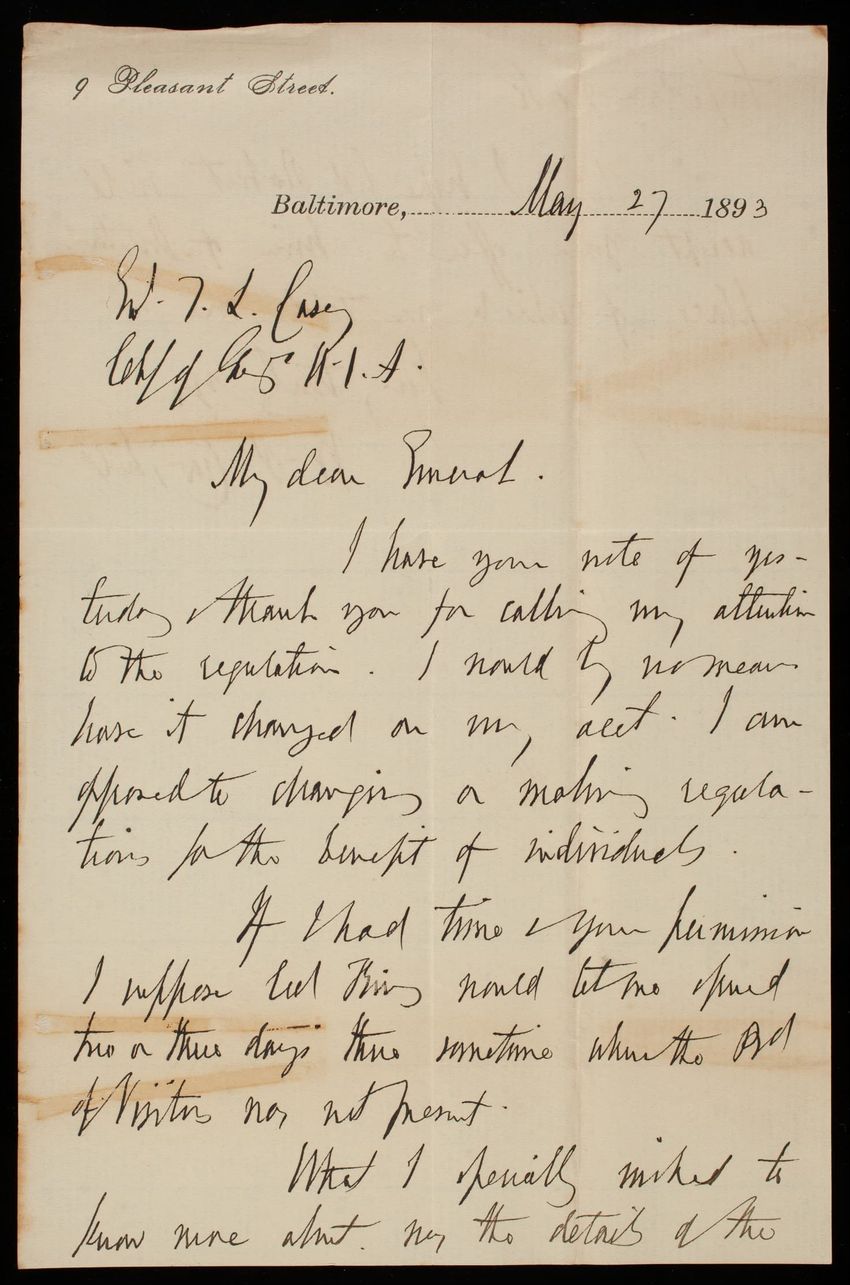 9 Pleasant Street.
Baltimore, May 27 1893
T. L. Casey
Chf of Engrs U.S.A.
My dear General.
I have your note of yes-
terday & thank you for calling my attention
to the regulation. I would by no means
have it changed on my acct. I am
opposed to changing or making regula-
tions for the benefit of individuals.
If I had time & your permission
I suppose Col King would let me spend
two or three days there sometime when the Bd
of Visitors was not present.
What I specially wished to
know more about. was the details of the